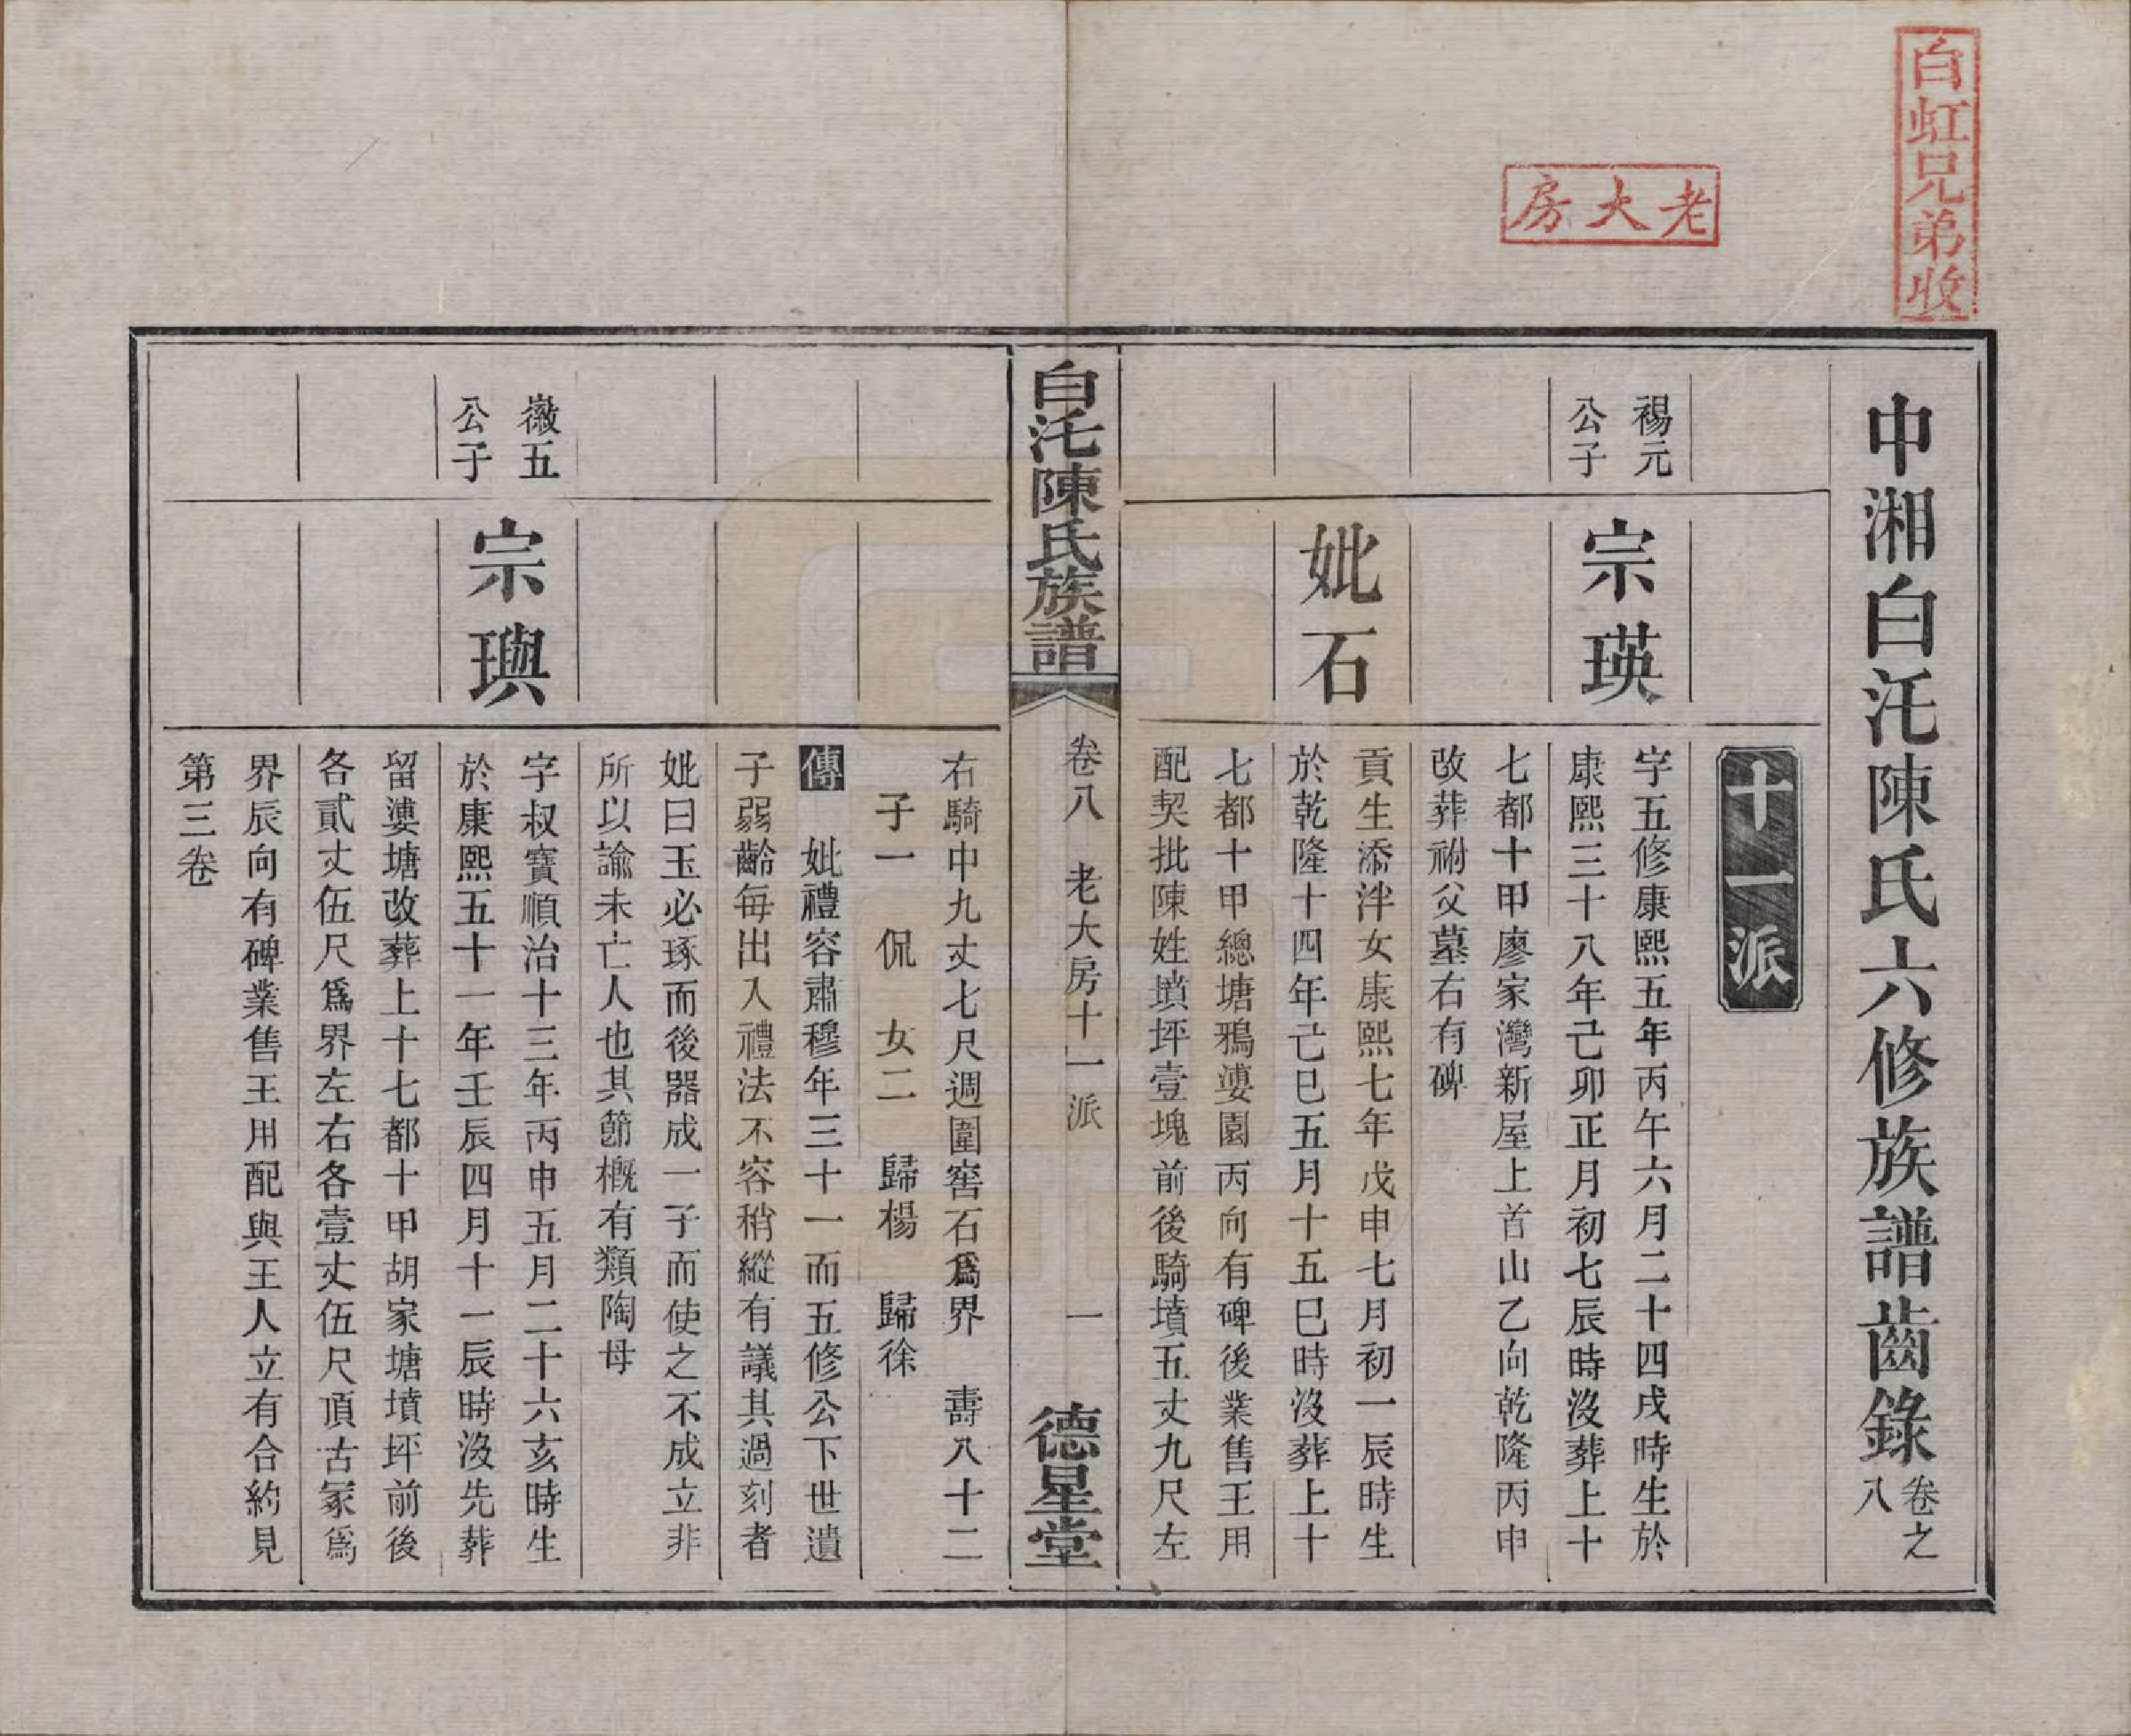 白虹兄弟收
老大房
中湘白沰陳氏六修族譜齒錄卷之八
十一派
禓元公子
宗瑛
字五修康熙五年丙午六月二十四戌時生於
康熙三十八年己卯正月初七辰時没葬上十
七都十甲廖家灣新屋上首山乙向乾隆丙申
改葬祔父墓右有碑
妣石
貢生添泮女康熙七年戊申七月初一辰時生
於乾隆十四年己巳五月十五巳時没葬上十
七都十甲總塘鴉漊園丙向有碑後業售王用
配契批陳姓墳坪壹塊前後騎墳五丈九尺左
白沰陳氏族譜
卷八 老大房十一派 一
德星堂
右騎中九丈七尺週圍窖石爲界 壽八十二
子一 侃 女二 歸楊 歸徐
傳 妣禮容肅穆年三十一而五修公下世遺
子弱齡每出入禮法不容稍縱有議其過刻者
妣曰玉必琢而後器成一子而使之不成立非
所以諭未亡人也其節概有類陶母
徽五公子
宗璵
字叔寶順治十三年丙申五月二十六亥時生
於康熙五十一年壬辰四月十一辰時没先葬
留漊塘改葬上十七都十甲胡家塘墳坪前後
各貳丈伍尺爲界左右各壹丈伍尺頂古冢爲
界辰向有碑業售王用配與王人立有合約見
第三卷